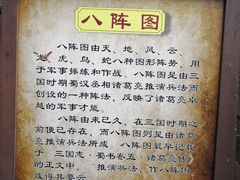 八阵图
八阵图由天、地、风、云
龙、虎、鸟、蛇八种图形阵势，用
于军事操练和作战。八阵图是由三
国时期蜀汉丞相诸葛亮推演兵法而
创设的一种阵法，反映了诸葛亮卓
越的军事才能。
八阵由来已久，在三国时期之
前便已存在，而八阵图则是由诸葛
亮推演兵法所成。八阵图最早记载
于《三国志·蜀书卷五·诸葛亮传》
的正文中，“推演兵法，作八阵图